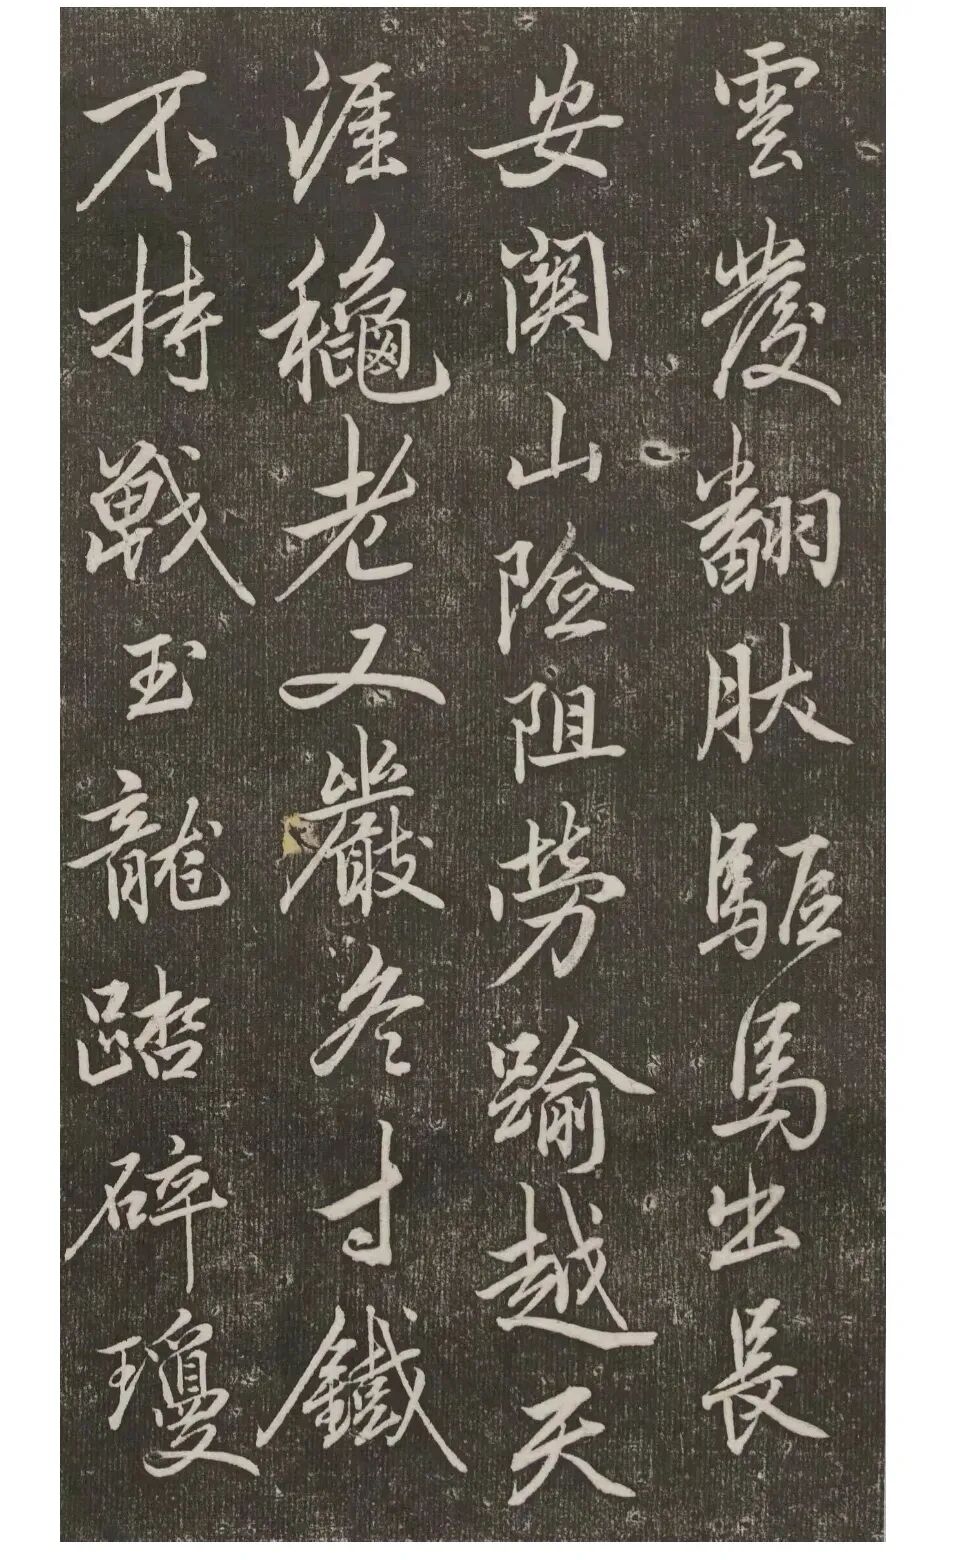 雲發翻驅馬出長
安關山險阻勞踰越天
涯龝老又嚴冬寸鐵
不持戰玉龍踏碎瓊